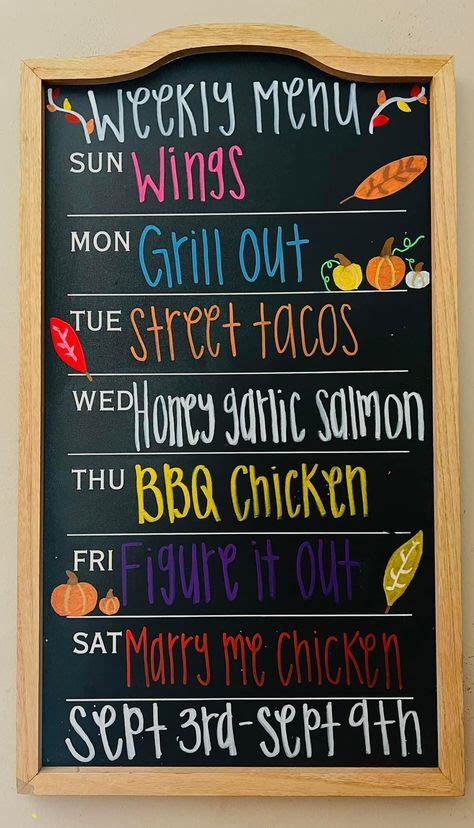 Weekly Menu
SUN Wings
MON Grill out
TUE Street tacos
WED Honey garlic salmon
THU BBQ Chicken
FRI Figure it out
SAT Marry me chicken
Sept 3rd-Sept 9th